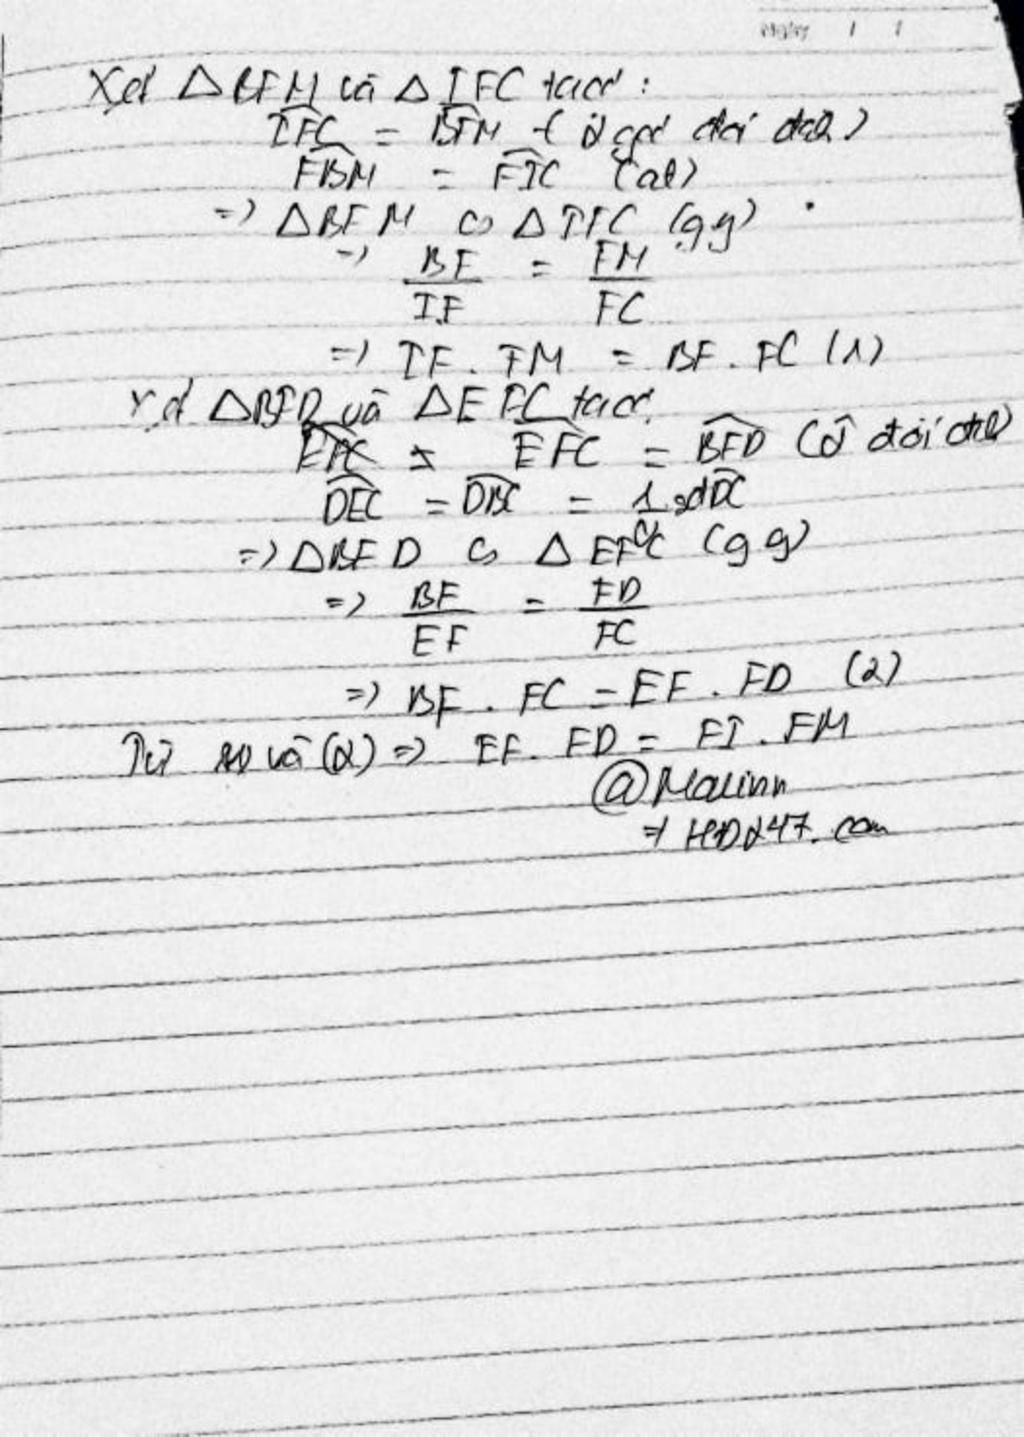 Ngày / /
Xét △BFM và △IFC ta có :
IFC = BFM ( 2 góc đối đỉnh )
FBM = FIC (cmt)
=> △BFM ᔕ △IFC (g g)
=> BF/IF = FM/FC
=> IF . FM = BF . FC (1)
Xét △BFD và △EFC ta có
EFC = BFD ( đối đỉnh
DEC = DBC = 1/2 sđ DC
=> △BFD ᔕ △EFC (g g)
=> BF/EF = FD/FC
=> BF . FC = EF . FD (2)
Từ và (2) => EF . FD = FI . FM
@Malinn
=> HD247.com